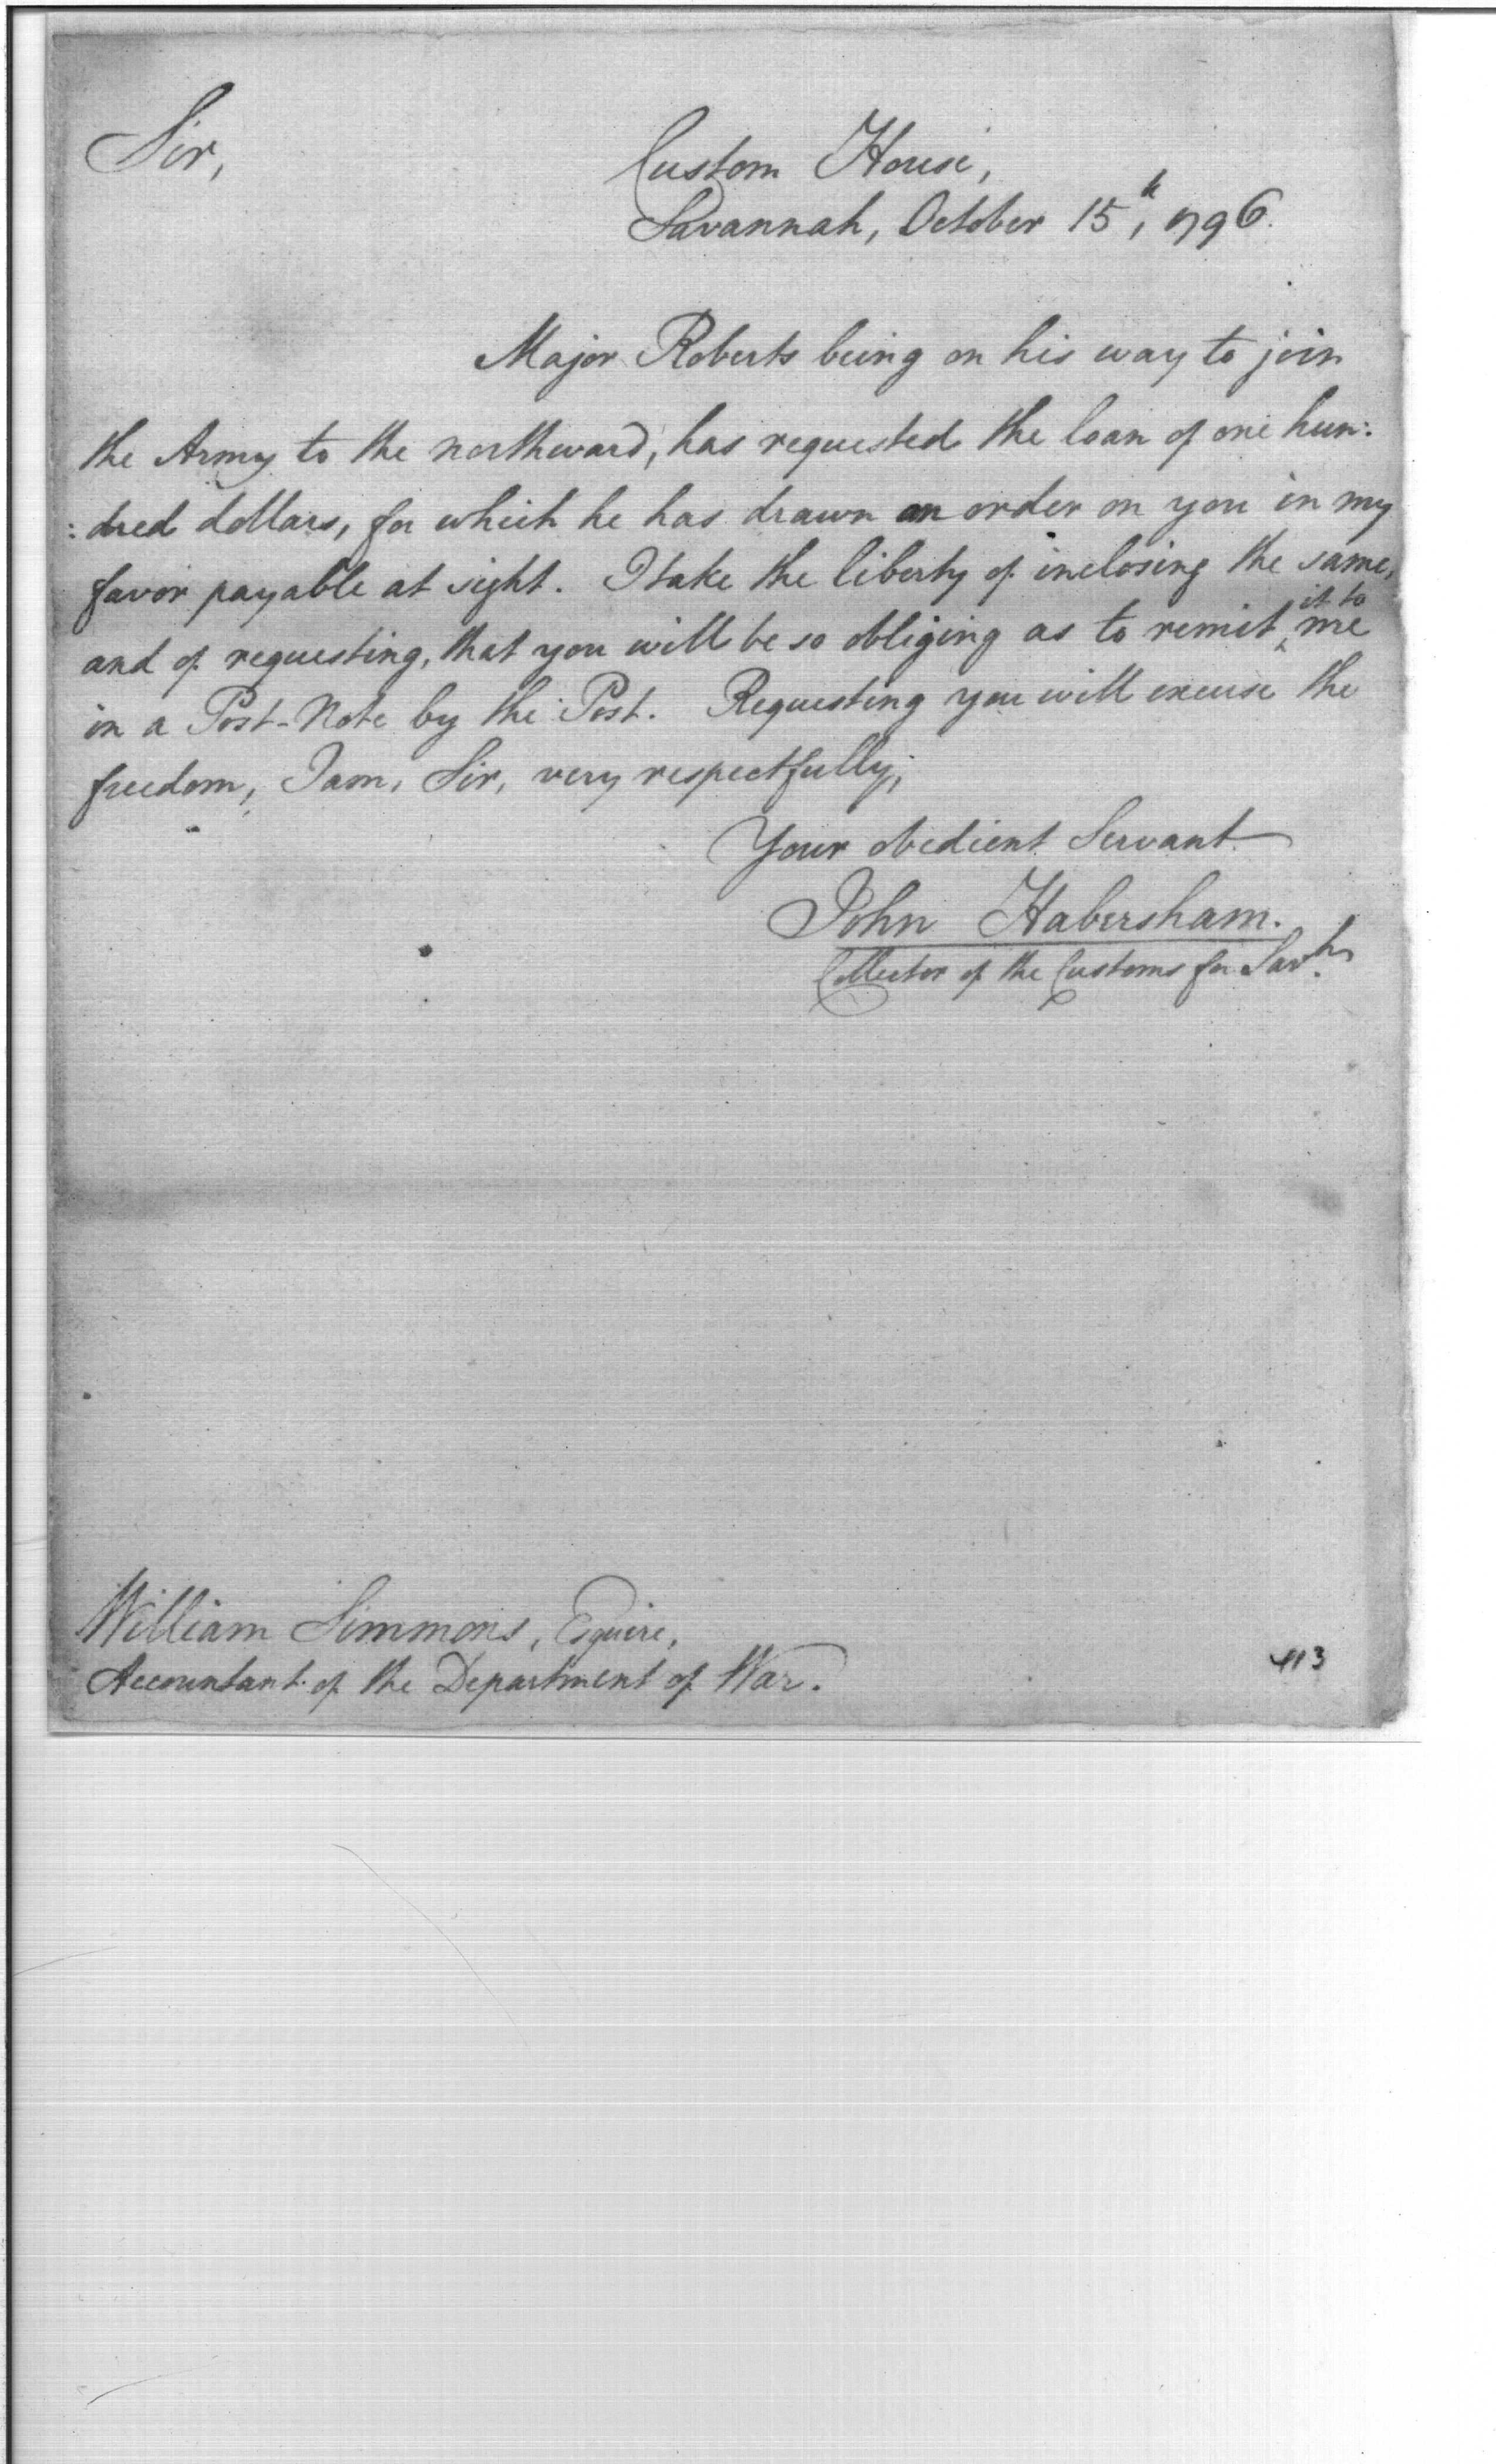 Sir,
Custom House,
Savannah, October 15th, 1796.
Major Roberts being on his way to join
the Army to the northward, has requested the loan of one hun:
:dred dollars, for which he has drawn an order on you in my
favor payable at sight. I take the liberty of inclosing the same,
and of requesting, that you will be so obliging as to remit ^it to me
in a Post-Note by the Post. Requesting you will excuse the
freedom, I am, Sir, very respectfully,
Your obedient Servant
John Habersham.
Collector of the Customs for Savh.
William Simmons, Esquire,
Accountant of the Department of War.
113